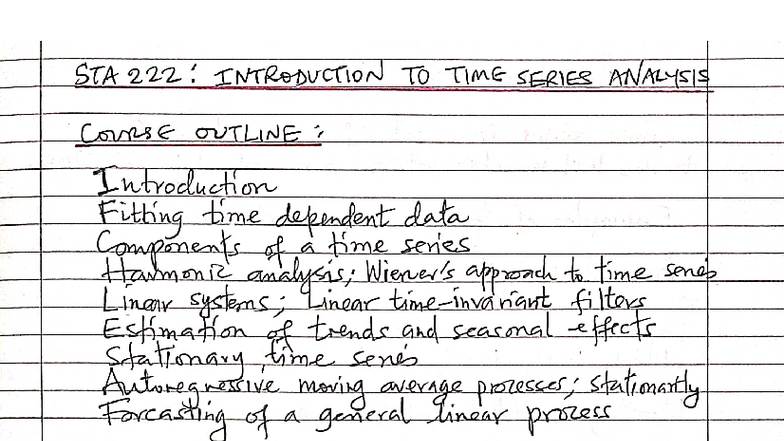 STA 222: INTRODUCTION TO TIME SERIES ANALYSIS
COURSE OUTLINE:
Introduction
Fitting time dependent data
Components of a time series
Harmonic analysis; Wiener's approach to time series
Linear systems; Linear time-invariant filters
Estimation of trends and seasonal effects
Stationary time series
Autoregressive moving average processes; stationartly
Forcasting of a general linear process